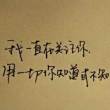 我一直在关注你
用一切你知道或不知